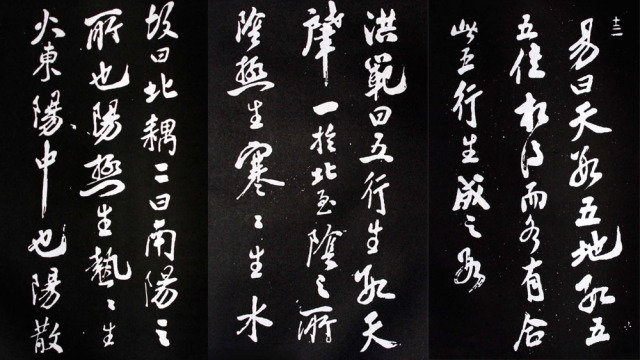 十三
易曰天數五地數五
五位相得而各有合
此五行生成之數
洪範曰五行生數天
肇一於北至陰之所
陰極生寒〻生水
故曰北耦二曰南陽之
所也陽極生熱〻生
火東陽中也陽散